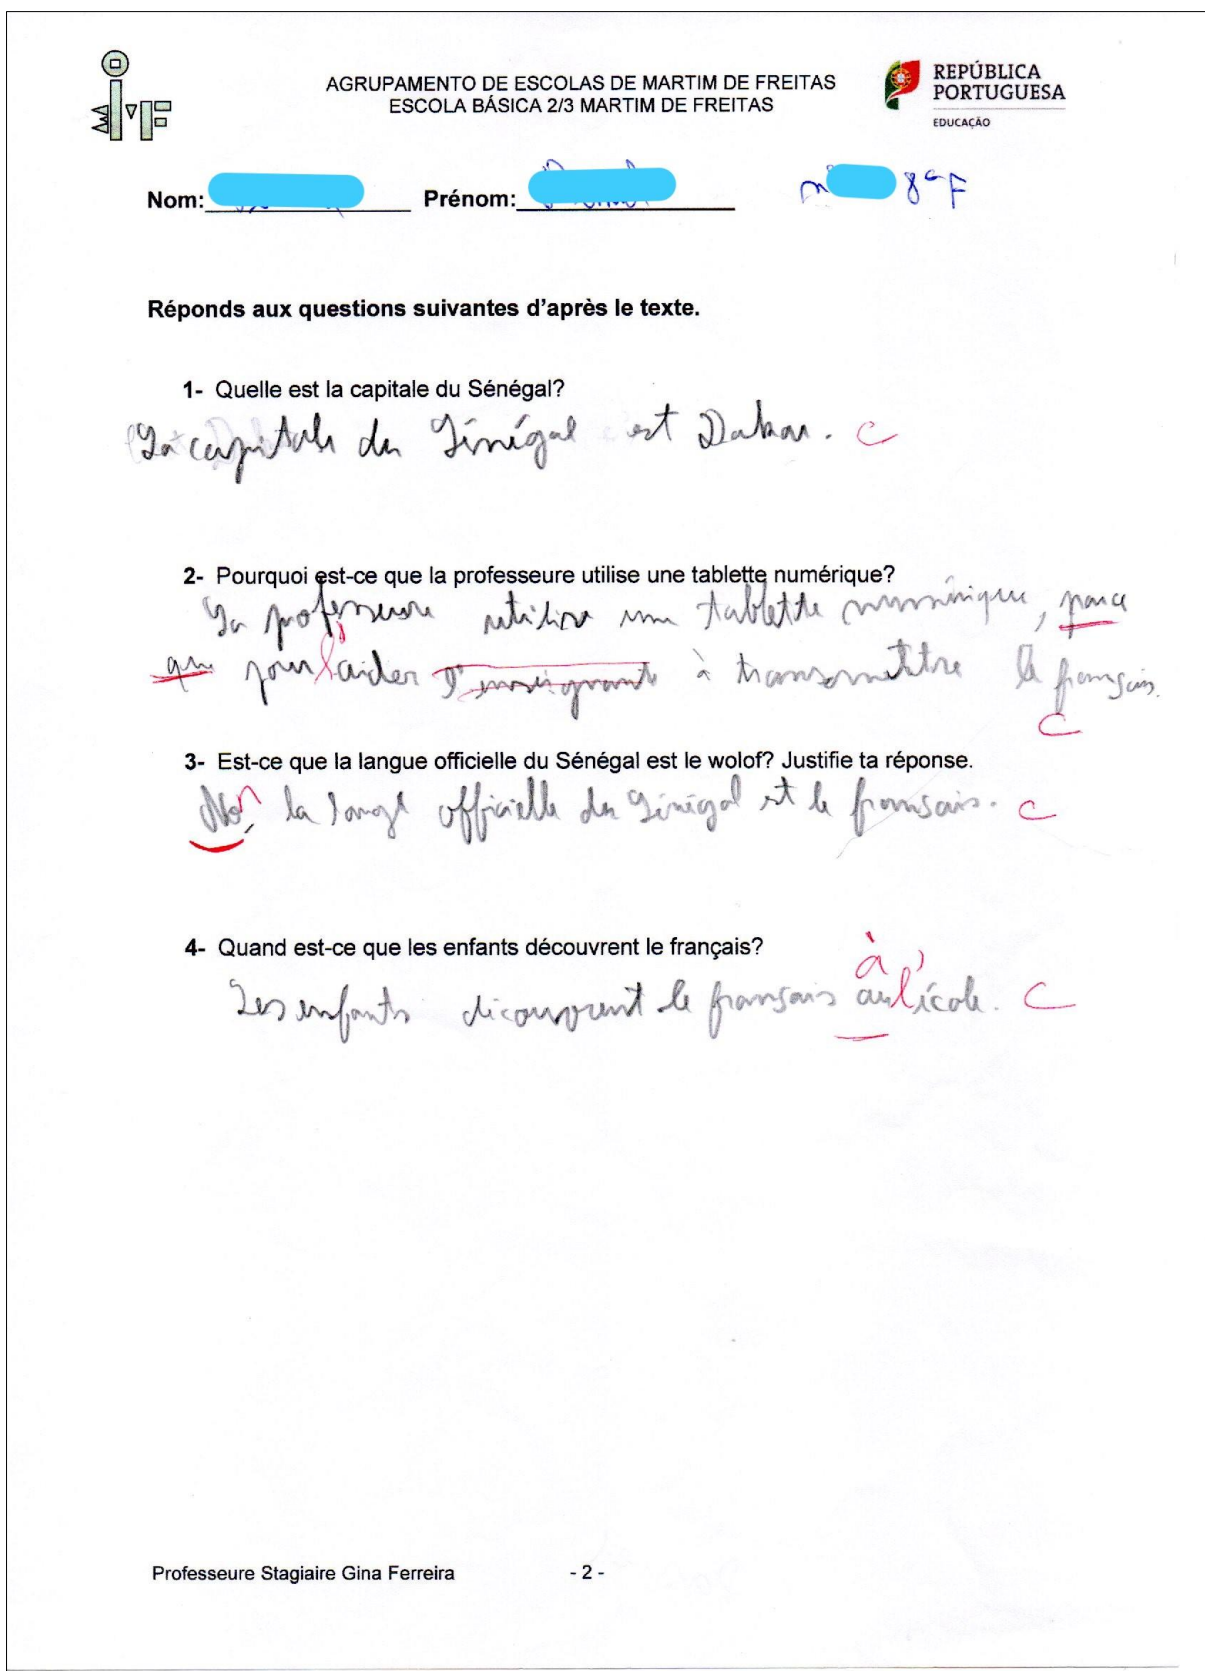 AGRUPAMENTO DE ESCOLAS DE MARTIM DE FREITAS
ESCOLA BÁSICA 2/3 MARTIM DE FREITAS
REPÚBLICA
PORTUGUESA
EDUCAÇÃO
Nom: Prénom: nº 8ºF
Réponds aux questions suivantes d'après le texte.
1- Quelle est la capitale du Sénégal?
La capitale du Sénégal est Dakar. C
2- Pourquoi est-ce que la professeure utilise une tablette numérique?
La professeure utilise une tablette numérique, parce
que pour l'aider l'enseignante à transmettre le français.
C
3- Est-ce que la langue officielle du Sénégal est le wolof? Justifie ta réponse.
Non, la officielle du Sénégal est le fransais. C
4- Quand est-ce que les enfants découvrent le français?
à
Les enfants découvrent le français au l'école. C
Professeure Stagiaire Gina Ferreira - 2 -